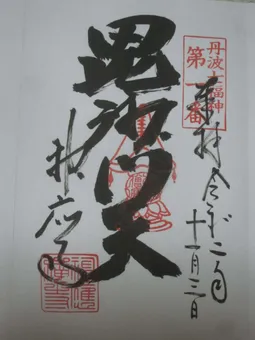 丹波七福神
第一番
奉拝
令和二年
十一月三日
毘沙門天
神応寺